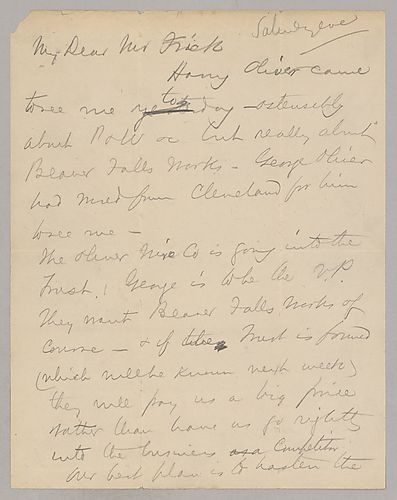 Saturday eve
My Dear Mr Frick
Harry Oliver came
to see me to day - ostensibly
about R o W &c but really about
Beaver Falls Works - George Oliver
had wired from Cleveland for him
to see me -
The Oliver Wire Co is going into the
Trust! George is to be the V.P.
They want Beaver Falls Works of
Course - & if Trust is formed
(which will be known next week)
they will pay us a big price
rather than have us go rightly
into the business as a Competitor
Our best plan is to hasten the